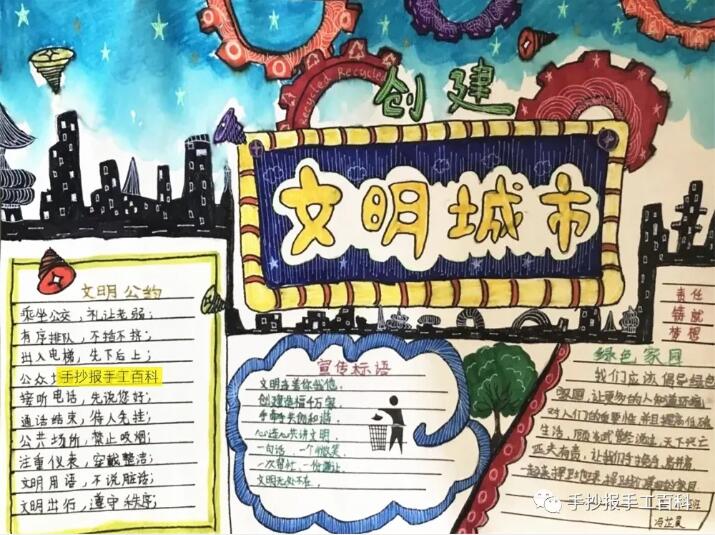 创建
文明城市
文明公约
乘坐公交，礼让老弱；
有序排队，不插不挤；
出入电梯，先下后上；
公众
手抄报手工百科
接听电话，先说您好；
通话结束，待人先挂；
公共场所，禁止吸烟；
注重仪表，穿戴整洁；
文明用语，不说脏话；
文明出行，遵守秩序；
宣传标语
文明连着你我他，
创建造福千万家
手牵手共创和谐
心连心共讲文明
一句话，一个微笑
文明无处不在，
责任
铸就
梦想
绿色家园
我们应该倡导绿色
家园，让更多的人知道环境
对人们的重要性，并且提高低碳
生活，
匹夫有责，让我们手牵手，肩并肩
一起来
手抄报手工百科
Recycled Recycled